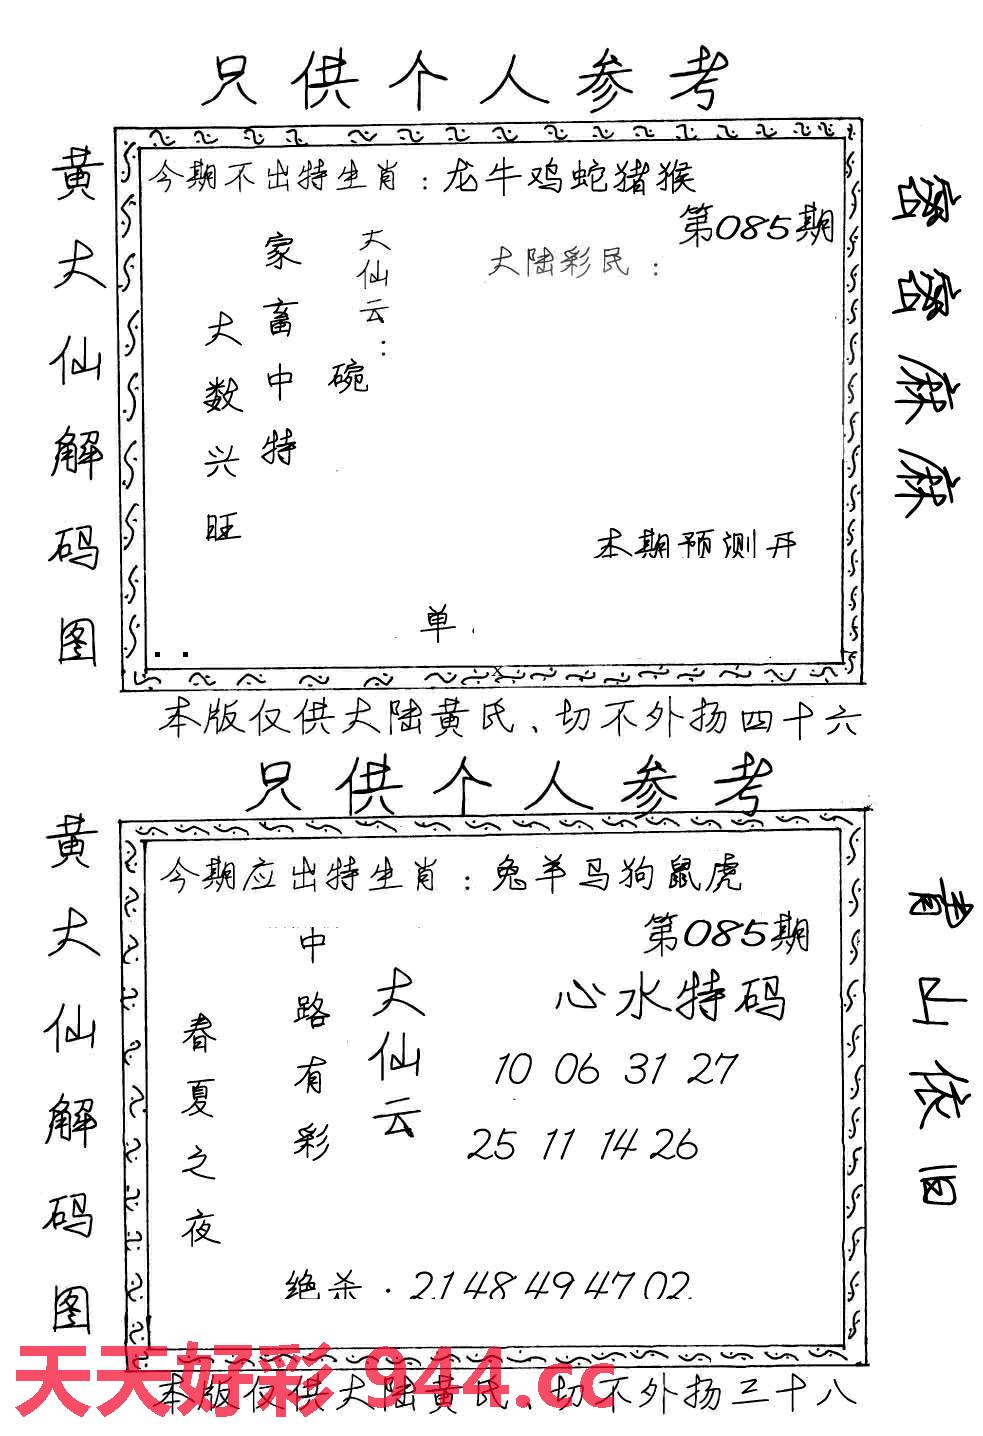 只供个人参考
黄大仙解码图
今期不出特生肖：龙牛鸡蛇猪猴
第085期
大仙云：
家畜中特
大数兴旺
碗
大陆彩民：
本期预测开
单
密密麻麻
本版仅供大陆黄氏、切不外扬四十六
只供个人参考
黄大仙解码图
今期应出特生肖：兔羊马狗鼠虎
第085期
大仙云
中路有彩
春夏之夜
心水特码
10 06 31 27
25 11 14 26
绝杀：21 48 49 47 02
青山依旧
天天好彩 944.cc
本版仅供大陆黄氏、切不外扬三十八